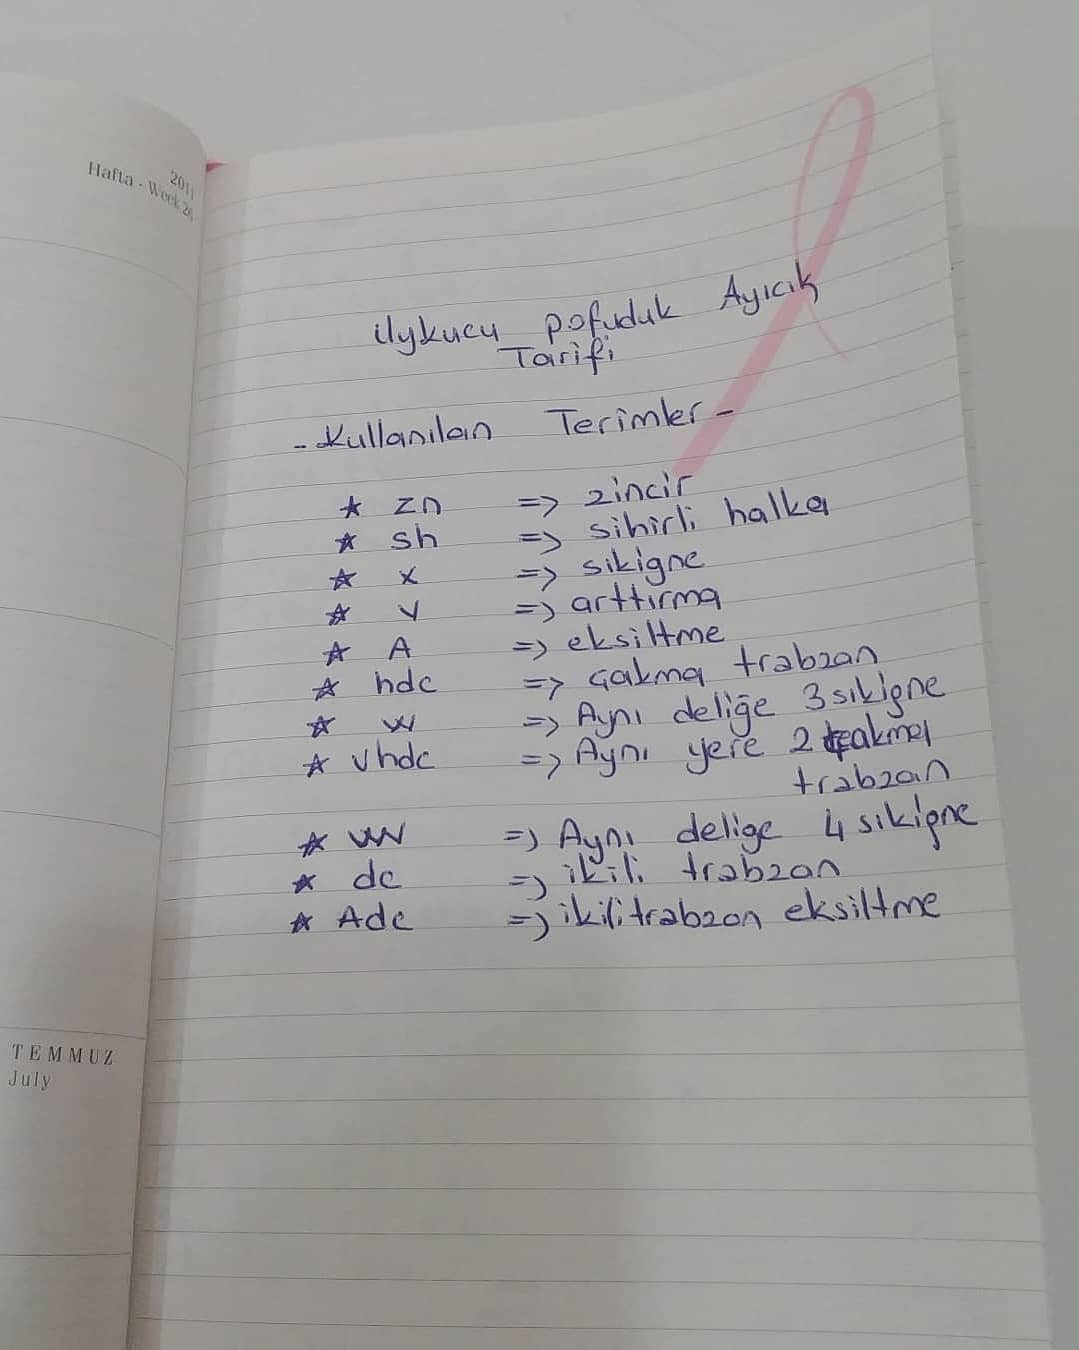 2011
Hafta - Week 26
Uykucu pofuduk Ayıcık
Tarifi
- Kullanılan Terimler -
* zn => zincir
* sh => sihirli halka
* x => sıkiğne
* v => arttırma
* A => eksiltme
* hdc => çakma trabzan
* w => Aynı deliğe 3 sıkiğne
* vhdc => Aynı yere 2 çakma
trabzan
* vw => Aynı deliğe 4 sıkiğne
* dc => ikili trabzan
* Adc => ikili trabzon eksiltme
TEMMUZ
July